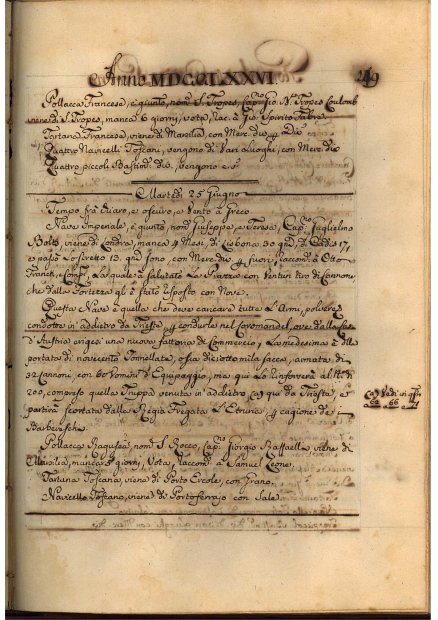 Anno MDCCLXXVI. 249
Pollacca Francesa, è giunto, nom.ᵃ S. Tropes, Cap.no Gio. Nᵃ Tropes Coulomb
viene di S. Tropes, manca 6 giorni, vota, Rac. a Gio. Spirito Fabre.
Tartana Francesa, viene di Marsilia, con Merc. div.
Quattro Navicelli Toscani, vengono di Vari Luoghi, con Merc. div.
Quattro piccoli Bastim. div. vengono
Martedì 25 Giugno
Tempo frà Chiaro, e oscuro, e Vento à Greco
Nave Imperiale, è giunto, nom. Giuseppe, e Teresa, Cap.no Guglielmo
Bolts, viene di Londra, manca 4 Mesi, di Lisbona 30 qui, di Cadis 17,
e passò lo Stretto 13. qui sono, con Merc. div. p fuori, raccom. à Otto
Franck, e Comp., la quale à salutato la Piazza con Venturi tiro di Cannone
che dalla Fortezza gl' è stato risposto con Nove.
Questa Nave è quella che deve caricare tutte l'Armi, polvere
condotte in'addietro da Trieste, p condurle nel Coromandel, ove dalla Casa
d'Austria eriger una nuova fattoria di Commercio; La medesima è della
portata di novecento Tonnellate, o sia diciotto mila sacca, armata di
32 Cannoni, con 60 Uomini d'Equipaggio, ma qui lo rinforzerà al N. di
200, compreso quella Truppa venuta in'addietro (a) qui da Trieste, e
partirà scortata dalla Regia Fregata l'Etruria p cagione de
Barbereschi.
(a) Vedi in q.
66
Pollacca Ragusea, nom. S. Rocco, Cap.no Giorgio Raffaelli viene di
Marsilia, manca 5 giorni, Vota, raccom. a Samuel Leone.
Tartana Toscana, viene di Porto Ercole, con Grano.
Navicello Toscano, viene di Portoferrajo con Sale.